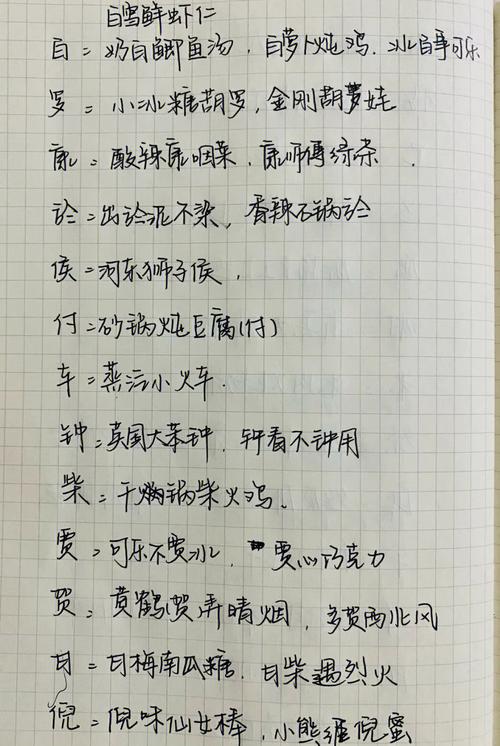 白雪鲜虾仁
白：奶白鲫鱼汤，白萝卜炖鸡，冰白事可乐
罗：小冰糖胡罗，金刚胡萝娃
康：酸辣康咽菜，康师傅绿茶．
於：出於泥不染，香辣石锅於
侯：河东狮子侯，
付：砂锅炖豆腐(付)
车：蒸汽小火车．
钟：英国大苯钟，钟看不钟用
柴：干焖锅柴火鸡．
贾：可乐不贾水，贾心巧克力
贺：黄鹤(贺)弄晴烟，多贺西北风
甘：甘梅南瓜糖，甘柴遇烈火
倪：倪味仙女棒，小熊维倪蜜